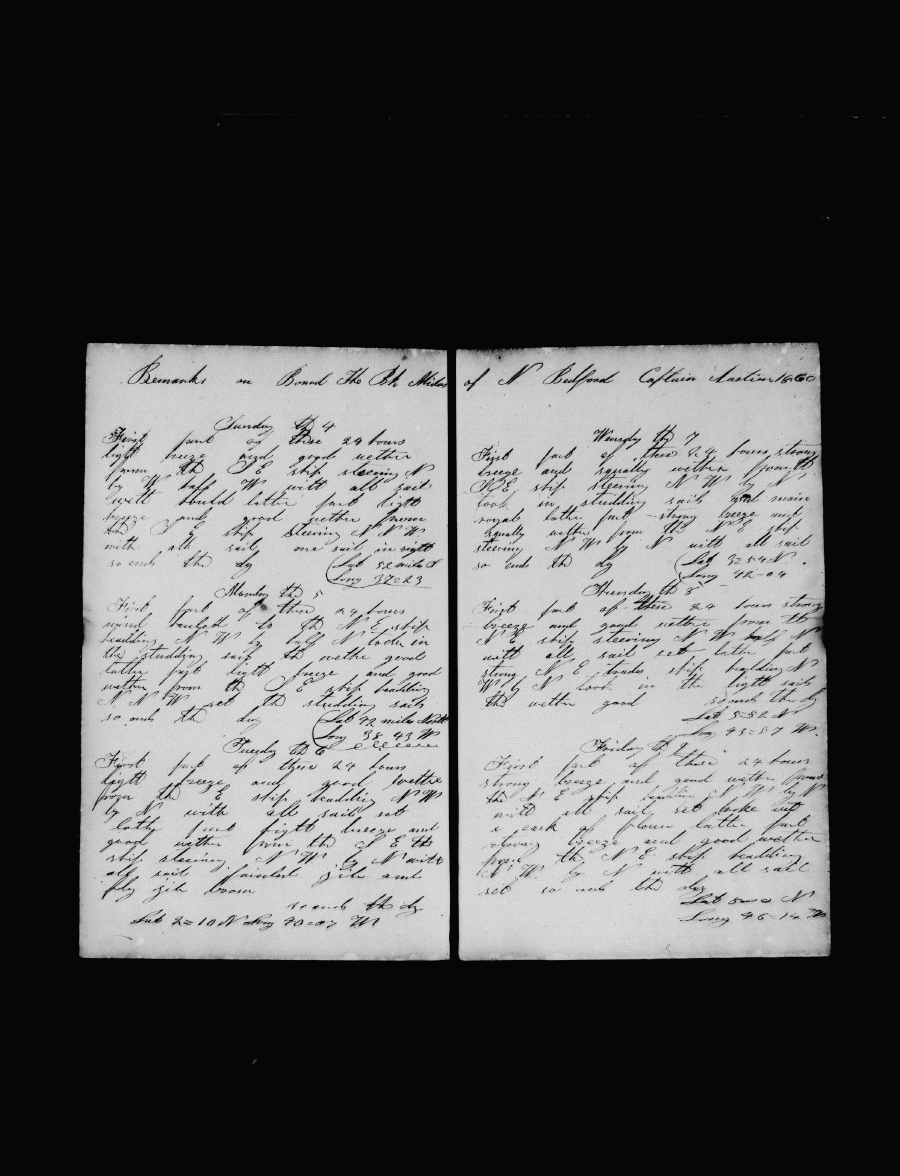 Remarks on Board The Bk Midas of N Bedford Captain Austin 1860
Sunday th 4
First part of these 24 hours
light breze and good wether
from th S E ship steering N
by W half W with all sail
with bould latter part light
breeze and good wether from
th S E ship steering N N W
with all sail one sail in sight
so ends the dy
Lat 52 miles S
Long 37=23
Monday th 5
First part of these 24 hours
wind hauled to th N E ship
headding N W by half N took in
the studding sails th wether good
latter part light breeze and good
wether from th S E ship headding
N N W set th studding sails
so ends th dy
Lat 42 miles North
Long 38 43 W
Tuesday th 6
First part of these 24 hours
light breeze and good wether
from th E ship headding N W
by N with all sail set
latty part light breeze and
good wether from th S E th
ship steering N W by N with
all sail painted jib and
fly jib boom
so ends th dy
Lat 2=10 N Long 40=07 W
Wensday th 7
First part of these 24 hours strong
breeze and squally wether from th
S E ship steering N W by N
took in studding sails and main
royal latter part strong breeze and
squally wether from th N E ship
steering N W by N with all sail
so ends th dy
Lat 3=54 N
Long 42=04
Thursday th 8
First part of these 24 hours strong
breeze and good wether from th
N E ship steering N W half N
with all sail set latter part
strong N E trades ship headding N
W by N took in the light sails
the wether good so ends the dy
Lat 5=52 N
Long 43=57 W
Friday th 9
First part of these 24 hours
strong breeze and good wether from
the N E ship headding N W by N
with all sail set broke out
a cask of flour latter part
strong breeze and good wether
from th N E ship headding
N W by N with all sail
set so ends th dy
Lat N
Long 46=14 W